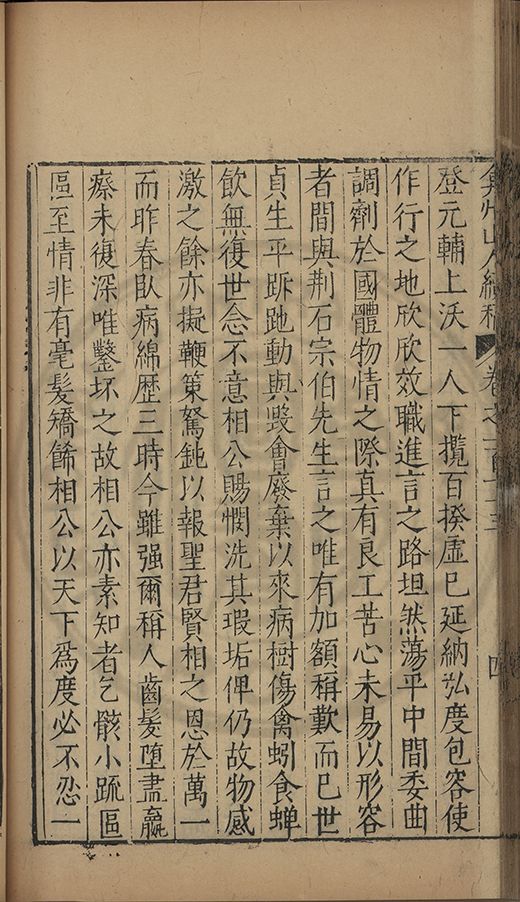 弇州山人續稿 卷之一百 四
登元輔上沃一人下攬百揆虛已延納弘度包容使
作行之地欣欣效職進言之路坦然蕩平中間委曲
調劑於國體物情之際真有良工苦心未易以形容
者間與荆石宗伯先生言之唯有加額稱歎而已世
貞生平跅跑動與毀會廢棄以來病樹傷禽蚓食蟬
飲無復世念不意相公賜憫洗其瑕垢俾仍故物感
激之餘亦擬鞭策駑鈍以報聖君賢相之恩於萬一
而昨春臥病綿歷三時今雖强爾稱人齒髮墮盡羸
瘵未復深唯鑿坏之故相公亦素知者乞骸小疏區
區至情非有毫髮矯餙相公以天下爲度必不忍一